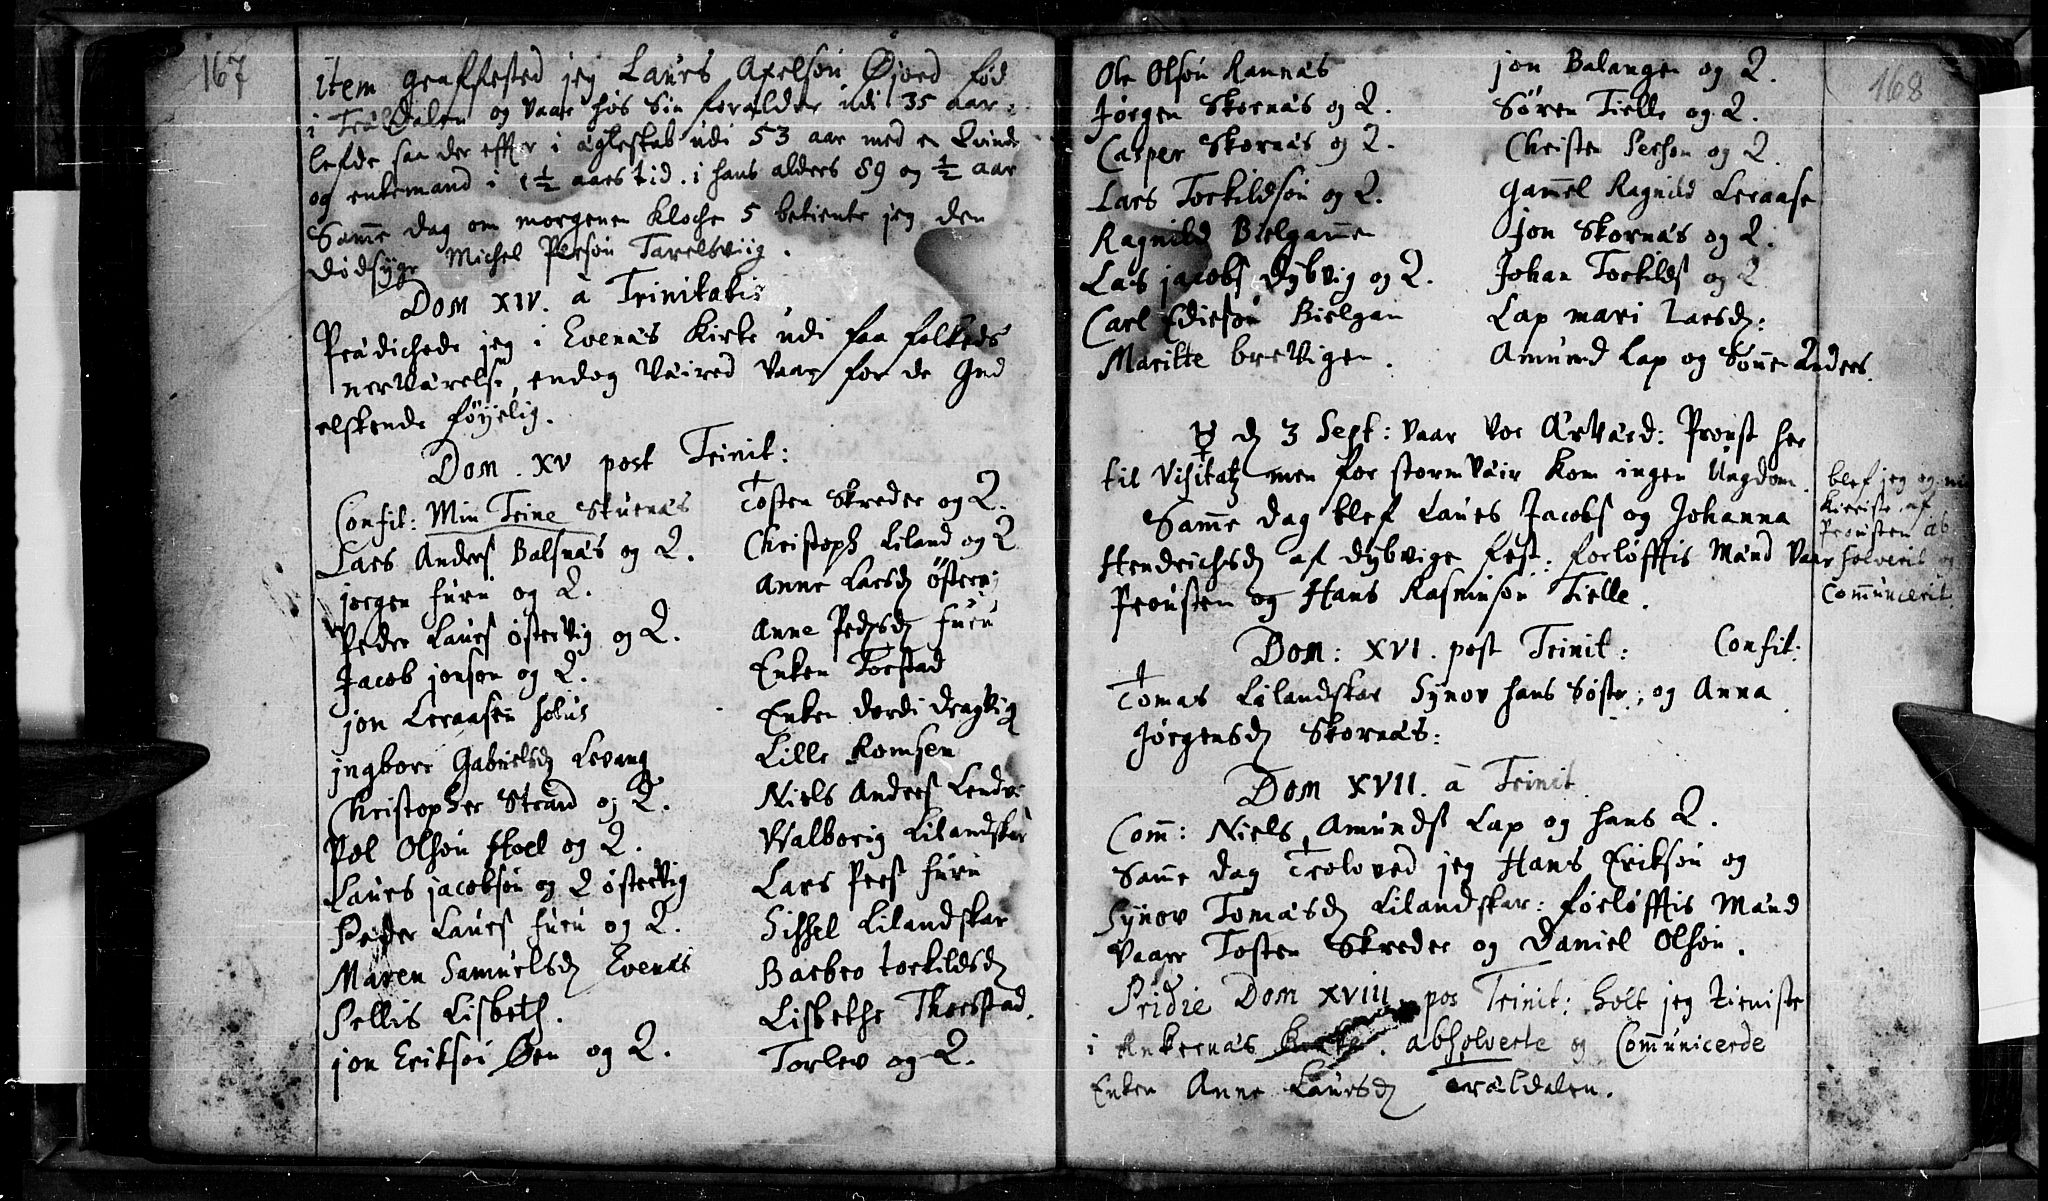 167
item graffested jeg Laurs Axelson Øjord fød
i Trældalen og vaar hos sin forældre udi 35 aar
lefde saa der effter i ægteskab udi 53 aar med en Qvinde
og enkemand i 1 1/2 aars tid. i hans alders 89 og 1/2 aar
Samme dag om morgenen klocke 5 betiente jeg den
dødsyge Michel Person Tarelsviig.
Dom XIV. a Trinitatis
Prædichede jeg i Evenæs Kirke udi faa folkeds
nerværelse, endog Væired vaar for de Gud
elskende føyelig.
Dom. XV post Trinit:
Confit: Min Trine Stuenæs
Lars Anders Balsnæs og Q.
jørgen furu og Q.
Peder Laurs østervig og Q.
Jacob jonson og Q.
jon Leraasen
jngbore Gabrielsd Levang
Christopher Strand og Q.
Pol Olson og Q.
Laurs jacobson og Q østervig
Peder Laurs furu og Q.
Maren Samuelsd Evenæs
Pellis Lisbeth.
jon Erikson Øen og Q.
Tosten Skreder og Q.
Christoph Liland og Q
Anne Larsd østerv:
Anne Pedersd furu
Enken Torstad
Enken dordi dragvig
Lille Romsen
Niels Anders Lendv
Walborig Lilandskar
Lars Pers furu
Sissel Lilandskar
Barbro torkildsd
Lisbethe Thorstad.
Torlev og Q.
168
Ole Olson Ramnæs
Jørgen Skornæs og Q.
Casper Skornæs og Q.
Lars Torkildson og Q.
Ragnild Bielgamme
Lars jacobs dybvig og Q.
Carl Ediesøn Bielgam
Maritte brevigen.
jon Balangen og Q.
Søren Tielle og Q.
Christen Person og Q.
Gammel Ragnild Leraase
Jon Skornæs og Q.
Johan Torkilds og Q
Lap mari Larsd:
Amund Lap og Sønn Anders.
☿ d 3 Sept: vaar vor Ærværd: Proust her
til Visitatz men for storm væir kom ingen Ungdom.
Samme dag blef Laurs Jacobs og Johanna
Hendrichsd af dybvige fest: forløfftis Mænd vaar
Prousten og Hans Rasmuson Tielle.
blef jeg og min
Kieriste af
Prousten ab
solverit og
Communcerit.
Dom: XVI. post Trinit: Confit:
Tomas Lilandskar Synov hans Søster, og Anna
Jørgensd Skornæs:
Dom XVII. a Trinit.
Com: Niels Amunds Lap og hans Q.
Samme dag Troloved jeg Hans Erikson og
Synov Tomasd Lilandskar: forløfftis Mænd
vaar Tosten Skreder og Daniel Olson.
Pridie Dom XVIII. pos Trinit: holt jeg tieniste
i Ankernæs Kirke. absolverte og Communicerde
Enken Anne Laursd Trældalen.